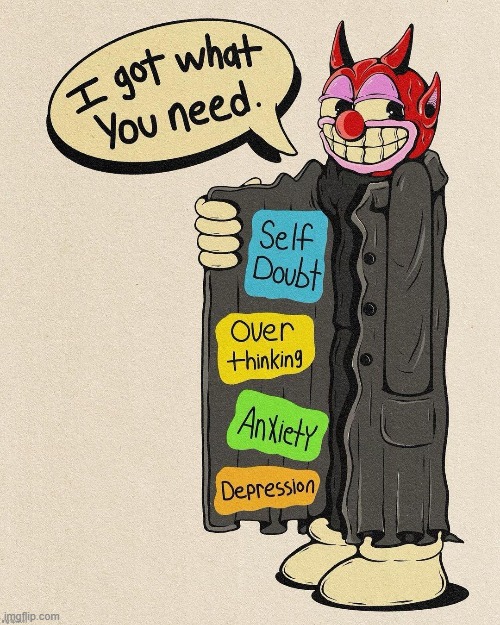 I got what
You need.
Self
Doubt
Over
thinking
Anxiety
Depression
imgflip.com